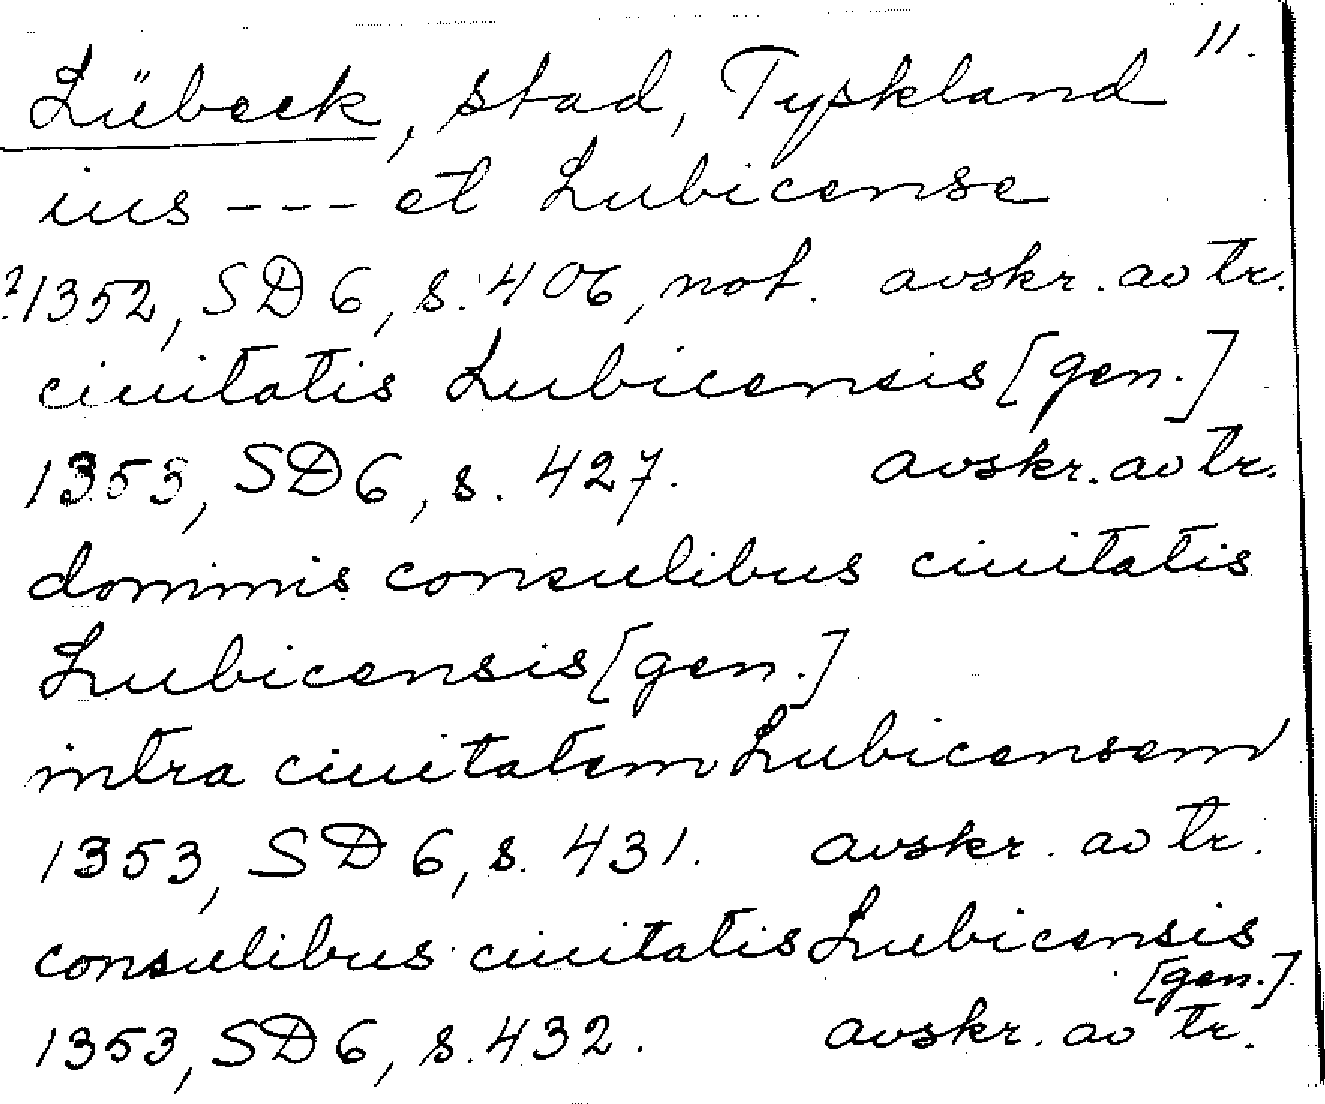 11.
Lübeck, stad, Tyskland
ius --- et Lubicense
?1352, SD 6, s. 406, not. avskr. av tr.
ciuitatis Lubicensis [gen.]
1353, SD 6, s. 427. avskr. av tr.
dominis consulibus ciuitatis
Lubicensis [gen.]
intra ciuitatem Lubicensem
1353, SD 6, s. 431. avskr. av tr.
consulibus ciuitatis Lubicensis
[gen.]
1353, SD 6, s. 432. avskr. av tr.